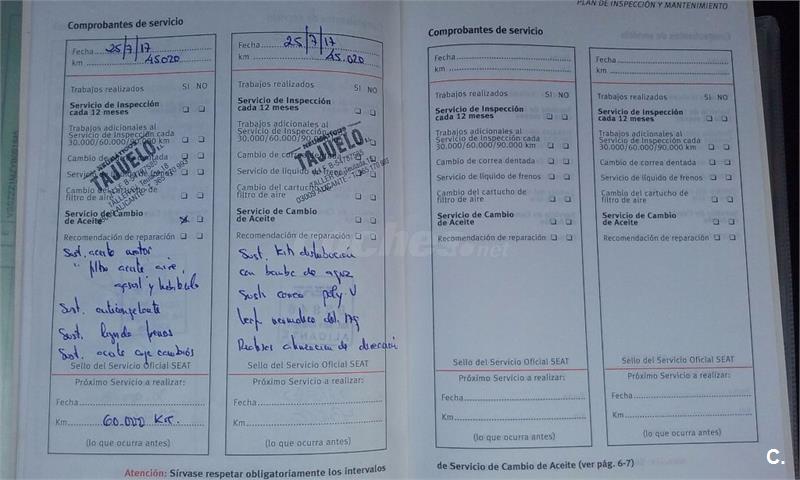 Comprobantes de servicio
Fecha 25/7/17
km 45020
Trabajos realizados SI NO
Servicio de Inspección
cada 12 meses
Trabajos adicionales al
Servicio de Inspección cada
30.000/60.000/90.000 km
Cambio de correa dentada
Servicio de líquido de frenos
Cambio del cartucho de
filtro de aire
Servicio de Cambio
de Aceite
Recomendación de reparación
NEUMATICOS
TAJUELO
Sust. aceite motor
" filtro aceite aire,
gasoil y habitaculo
Sust. anticongelante
Sust. liquido frenos
Sust. aceite caja cambios
Sello del Servicio Oficial SEAT
Próximo Servicio a realizar:
Fecha
Km 60.000 Km.
(lo que ocurra antes)
Fecha 25/7/17
km 45.020
Trabajos realizados SI NO
Servicio de Inspección
cada 12 meses
Trabajos adicionales al
Servicio de Inspección cada
30.000/60.000/90.000 km
Cambio de correa dentada
Servicio de líquido de frenos
Cambio del cartucho de
filtro de aire
Servicio de Cambio
de Aceite
Recomendación de reparación
NEUMATICOS
TAJUELO
Sust. Kit distribucion
con bomba de agua
Sust. correa poly V
Sello del Servicio Oficial SEAT
Próximo Servicio a realizar:
Fecha
Km
(lo que ocurra antes)
Atención: Sírvase respetar obligatoriamente los intervalos
PLAN DE INSPECCIÓN Y MANTENIMIENTO
Comprobantes de servicio
Fecha
km
Trabajos realizados SI NO
Servicio de Inspección
cada 12 meses
Trabajos adicionales al
Servicio de Inspección cada
30.000/60.000/90.000 km
Cambio de correa dentada
Servicio de líquido de frenos
Cambio del cartucho de
filtro de aire
Servicio de Cambio
de Aceite
Recomendación de reparación
Sello del Servicio Oficial SEAT
Próximo Servicio a realizar:
Fecha
Km
(lo que ocurra antes)
Fecha
km
Trabajos realizados SI NO
Servicio de Inspección
cada 12 meses
Trabajos adicionales al
Servicio de Inspección cada
30.000/60.000/90.000 km
Cambio de correa dentada
Servicio de líquido de frenos
Cambio del cartucho de
filtro de aire
Servicio de Cambio
de Aceite
Recomendación de reparación
Sello del Servicio Oficial SEAT
Próximo Servicio a realizar:
Fecha
Km
(lo que ocurra antes)
de Servicio de Cambio de Aceite (ver pág. 6-7)
C.